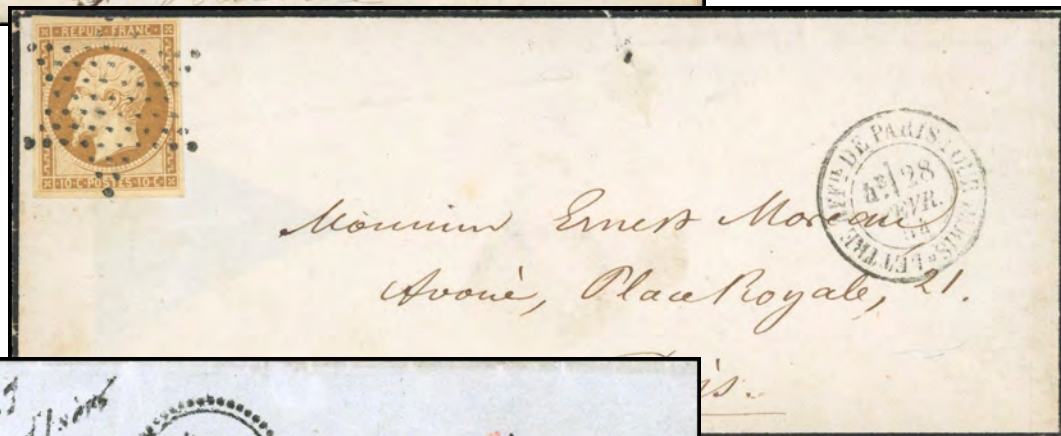 REPUB·FRANC·
10·C·POSTES·10·C
LETTRE AFFR. DE PARIS POUR PARIS
4E 28
FEVR.
54
Monsieur Ernest Moreau
Avoué, Place Royale, 21.